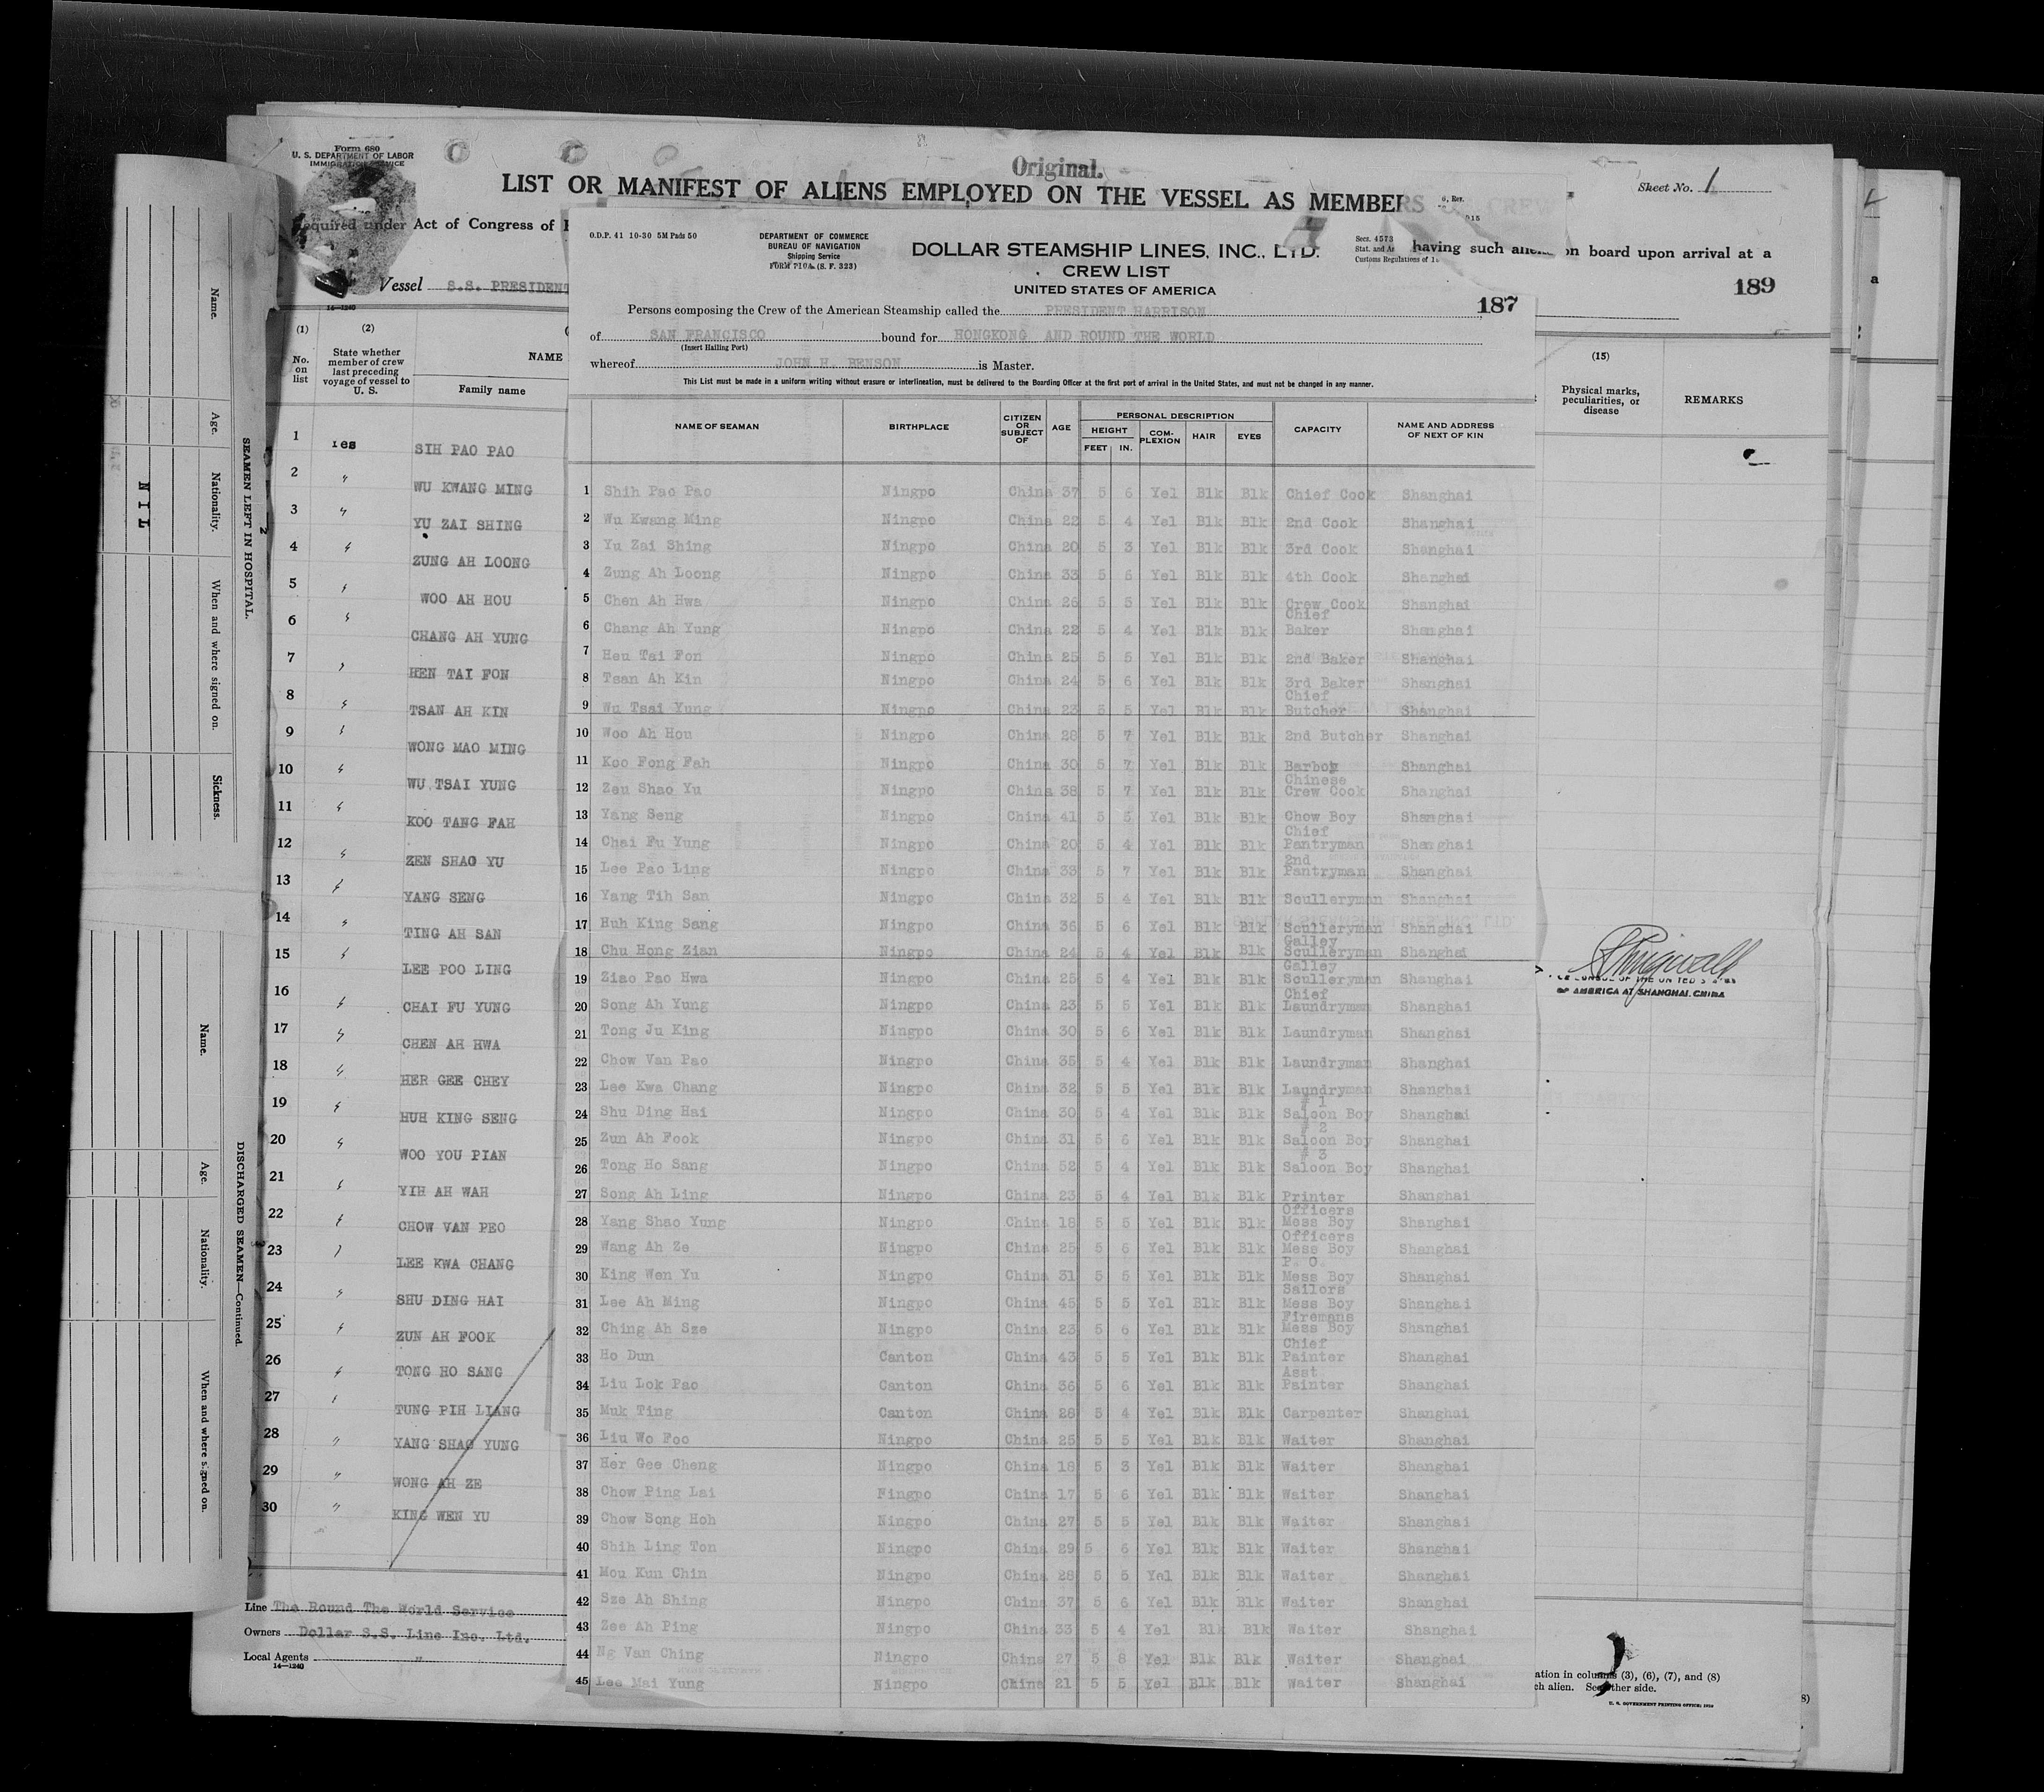 Form 680
U. S. DEPARTMENT OF LABOR
IMMIGRATION SERVICE
Original.
LIST OR MANIFEST OF ALIENS EMPLOYED ON THE VESSEL AS MEMBERS OF CREW
Sheet No. 1
Required under Act of Congress of
having such aliens on board upon arrival at a
Vessel S.S. PRESIDENT
189
14—1240
(1) (2)
No. on list
State whether member of crew last preceding voyage of vessel to U. S.
NAME
Family name
(15)
Physical marks, peculiarities, or disease
REMARKS
1 Yes SIH PAO PAO
2 " WU KWANG MING
3 " YU ZAI SHING
4 " ZUNG AH LOONG
5 " WOO AH HOU
6 " CHANG AH YUNG
7 " HEN TAI FON
8 " TSAN AH KIN
9 " WONG MAO MING
10 " WU TSAI YUNG
11 " KOO TANG FAH
12 " ZEN SHAO YU
13 " YANG SENG
14 " TING AH SAN
15 " LEE POO LING
16 " CHAI FU YUNG
17 " CHEN AH HWA
18 " HER GEE CHEY
19 " HUH KING SENG
20 " WOO YOU PIAN
21 " YIH AH WAH
22 " CHOW VAN PEO
23 " LEE KWA CHANG
24 " SHU DING HAI
25 " ZUN AH FOOK
26 " TONG HO SANG
27 " TUNG PIH LIANG
28 " YANG SHAO YUNG
29 " WONG AH ZE
30 " KING WEN YU
Line The Round The World Service
Owners Dollar S.S. Line Inc. Ltd.
Local Agents "
14—1240
O.D.P. 41 10-30 5M Pads 50
DEPARTMENT OF COMMERCE
BUREAU OF NAVIGATION
Shipping Service
FORM 710A (S. F. 323)
DOLLAR STEAMSHIP LINES, INC., LTD.
CREW LIST
UNITED STATES OF AMERICA
Secs. 4573
Customs Regulations of
187
Persons composing the Crew of the American Steamship called the PRESIDENT HARRISON
of SAN FRANCISCO bound for HONGKONG AND ROUND THE WORLD
(Insert Hailing Port)
whereof JOHN H. BENSON is Master.
This List must be made in a uniform writing without erasure or interlineation, must be delivered to the Boarding Officer at the first port of arrival in the United States, and must not be changed in any manner.
NAME OF SEAMAN BIRTHPLACE CITIZEN OR SUBJECT OF AGE PERSONAL DESCRIPTION CAPACITY NAME AND ADDRESS OF NEXT OF KIN
HEIGHT COM-PLEXION HAIR EYES
FEET IN.
1 Shih Pao Pao Ningpo China 37 5 6 Yel Blk Blk Chief Cook Shanghai
2 Wu Kwang Ming Ningpo China 22 5 4 Yel Blk Blk 2nd Cook Shanghai
3 Yu Zai Shing Ningpo China 20 5 3 Yel Blk Blk 3rd Cook Shanghai
4 Zung Ah Loong Ningpo China 33 5 5 Yel Blk Blk 4th Cook Shanghai
5 Chen Ah Hwa Ningpo China 26 5 5 Yel Blk Blk Crew Cook Shanghai
6 Chang Ah Yung Ningpo China 22 5 4 Yel Blk Blk Chief Baker Shanghai
7 Heu Tai Fon Ningpo China 25 5 5 Yel Blk Blk 2nd Baker Shanghai
8 Tsan Ah Kin Ningpo China 24 5 6 Yel Blk Blk 3rd Baker Shanghai
9 Wu Tsai Yung Ningpo China 23 5 5 Yel Blk Blk Chief Butcher Shanghai
10 Woo Ah Hou Ningpo China 28 5 7 Yel Blk Blk 2nd Butcher Shanghai
11 Koo Fong Fah Ningpo China 30 5 7 Yel Blk Blk Barber Shanghai
12 Zeu Shao Yu Ningpo China 38 5 7 Yel Blk Blk Chinese Crew Cook Shanghai
13 Yang Seng Ningpo China 41 5 5 Yel Blk Blk Chow Boy Shanghai
14 Chai Fu Yung Ningpo China 20 5 4 Yel Blk Blk Chief Pantryman Shanghai
15 Lee Pao Ling Ningpo China 33 5 7 Yel Blk Blk 2nd Pantryman Shanghai
16 Yang Tih San Ningpo China 32 5 4 Yel Blk Blk Sculleryman Shanghai
17 Huh King Sang Ningpo China 36 5 6 Yel Blk Blk Sculleryman Shanghai
18 Chu Hong Zian Ningpo China 24 5 4 Yel Blk Blk Galley Sculleryman Shanghai
19 Ziao Pao Hwa Ningpo China 25 5 4 Yel Blk Blk Galley Sculleryman Shanghai
20 Song Ah Yung Ningpo China 23 5 5 Yel Blk Blk Chief Laundryman Shanghai
21 Tong Ju King Ningpo China 30 5 6 Yel Blk Blk Laundryman Shanghai
22 Chow Van Pao Ningpo China 35 5 4 Yel Blk Blk Laundryman Shanghai
23 Lee Kwa Chang Ningpo China 32 5 5 Yel Blk Blk Laundryman Shanghai
24 Shu Ding Hai Ningpo China 30 5 4 Yel Blk Blk # 1 Saloon Boy Shanghai
25 Zun Ah Fook Ningpo China 31 5 6 Yel Blk Blk # 2 Saloon Boy Shanghai
26 Tong Ho Sang Ningpo China 52 5 4 Yel Blk Blk # 3 Saloon Boy Shanghai
27 Song Ah Ling Ningpo China 23 5 4 Yel Blk Blk Printer Shanghai
28 Yang Shao Yung Ningpo China 18 5 5 Yel Blk Blk Officers Mess Boy Shanghai
29 Wang Ah Ze Ningpo China 25 5 6 Yel Blk Blk Officers Mess Boy Shanghai
30 King Wen Yu Ningpo China 31 5 5 Yel Blk Blk P. O. Mess Boy Shanghai
31 Lee Ah Ming Ningpo China 45 5 5 Yel Blk Blk Sailors Mess Boy Shanghai
32 Ching Ah Sze Ningpo China 23 5 6 Yel Blk Blk Firemans Mess Boy Shanghai
33 Ho Dun Canton China 43 5 5 Yel Blk Blk Chief Painter Shanghai
34 Liu Lok Pao Canton China 36 5 6 Yel Blk Blk Asst Painter Shanghai
35 Muk Ting Canton China 26 5 4 Yel Blk Blk Carpenter Shanghai
36 Liu Wo Foo Ningpo China 25 5 5 Yel Blk Blk Waiter Shanghai
37 Her Gee Cheng Ningpo China 18 5 3 Yel Blk Blk Waiter Shanghai
38 Chow Ping Lai Fingpo China 17 5 6 Yel Blk Blk Waiter Shanghai
39 Chow Song Hoh Ningpo China 27 5 5 Yel Blk Blk Waiter Shanghai
40 Shih Ling Ton Ningpo China 29 5 6 Yel Blk Blk Waiter Shanghai
41 Mou Kun Chin Ningpo China 28 5 5 Yel Blk Blk Waiter Shanghai
42 Sze Ah Shing Ningpo China 37 5 6 Yel Blk Blk Waiter Shanghai
43 Zee Ah Ping Ningpo China 33 5 4 Yel Blk Blk Waiter Shanghai
44 Ng Van Ching Ningpo China 27 5 8 Yel Blk Blk Waiter Shanghai
45 Lee Mai Yung Ningpo China 21 5 5 Yel Blk Blk Waiter Shanghai
OF AMERICA AT SHANGHAI, CHINA
ation in columns (3), (6), (7), and (8)
ch alien. See other side.
U. S. GOVERNMENT PRINTING OFFICE
SEAMEN LEFT IN HOSPITAL.
Name. Age. Nationality. When and where signed on. Sickness.
NIL
DISCHARGED SEAMEN—Continued.
Name. Age. Nationality. When and where signed on.